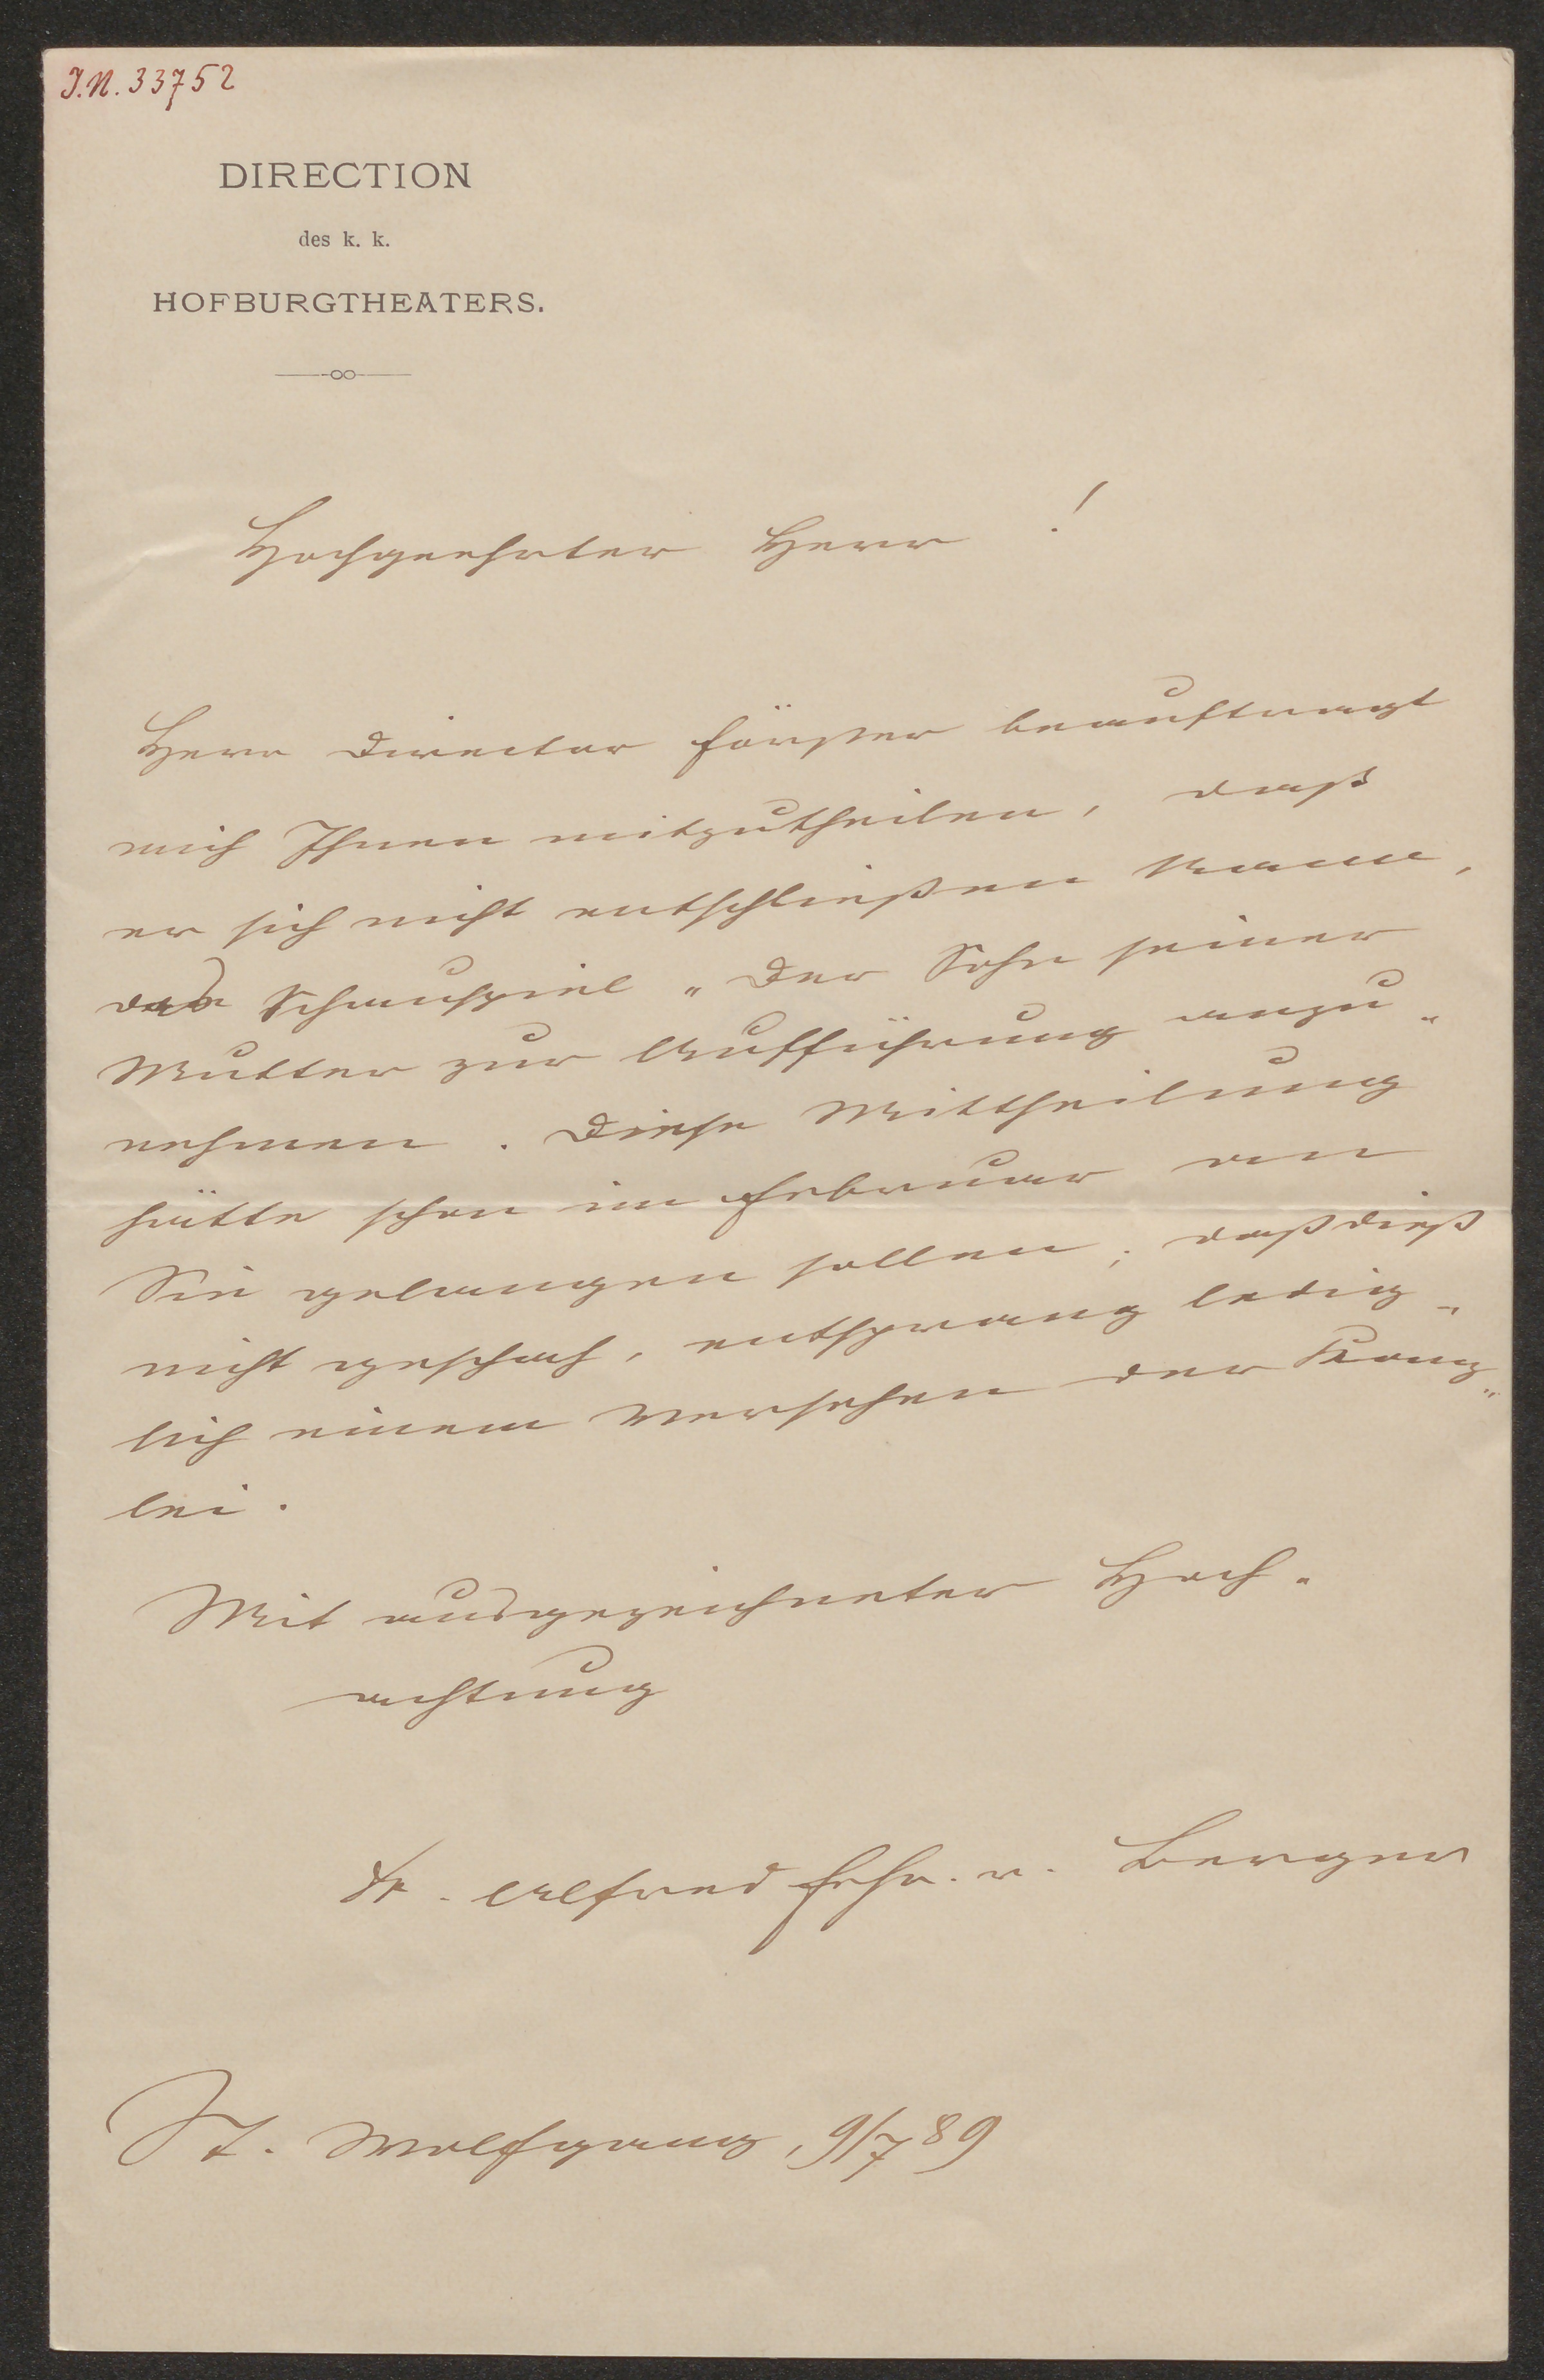 J.N. 33752
DIRECTION
des k. k.
HOFBURGTHEATERS.
Hochgeehrter Herr!
Herr Director Förster beauftragt
mich Ihnen mitzutheilen, daß
er sich nicht entschließen kann,
das Schauspiel „Der Sohn seiner
Mutter zur Aufführung anzu„
nehmen. Diese Mittheilung
hätte schon im Februar an
Sie gelangen sollen; daß dieß
nicht geschah, entsprang ledig„
lich einem Versehen der Kanz„
lei.
Mit ausgezeichneter Hoch„
achtung
Dr. Alfred Frhr. v. Berger
St. Wolfgang, 9/7 89